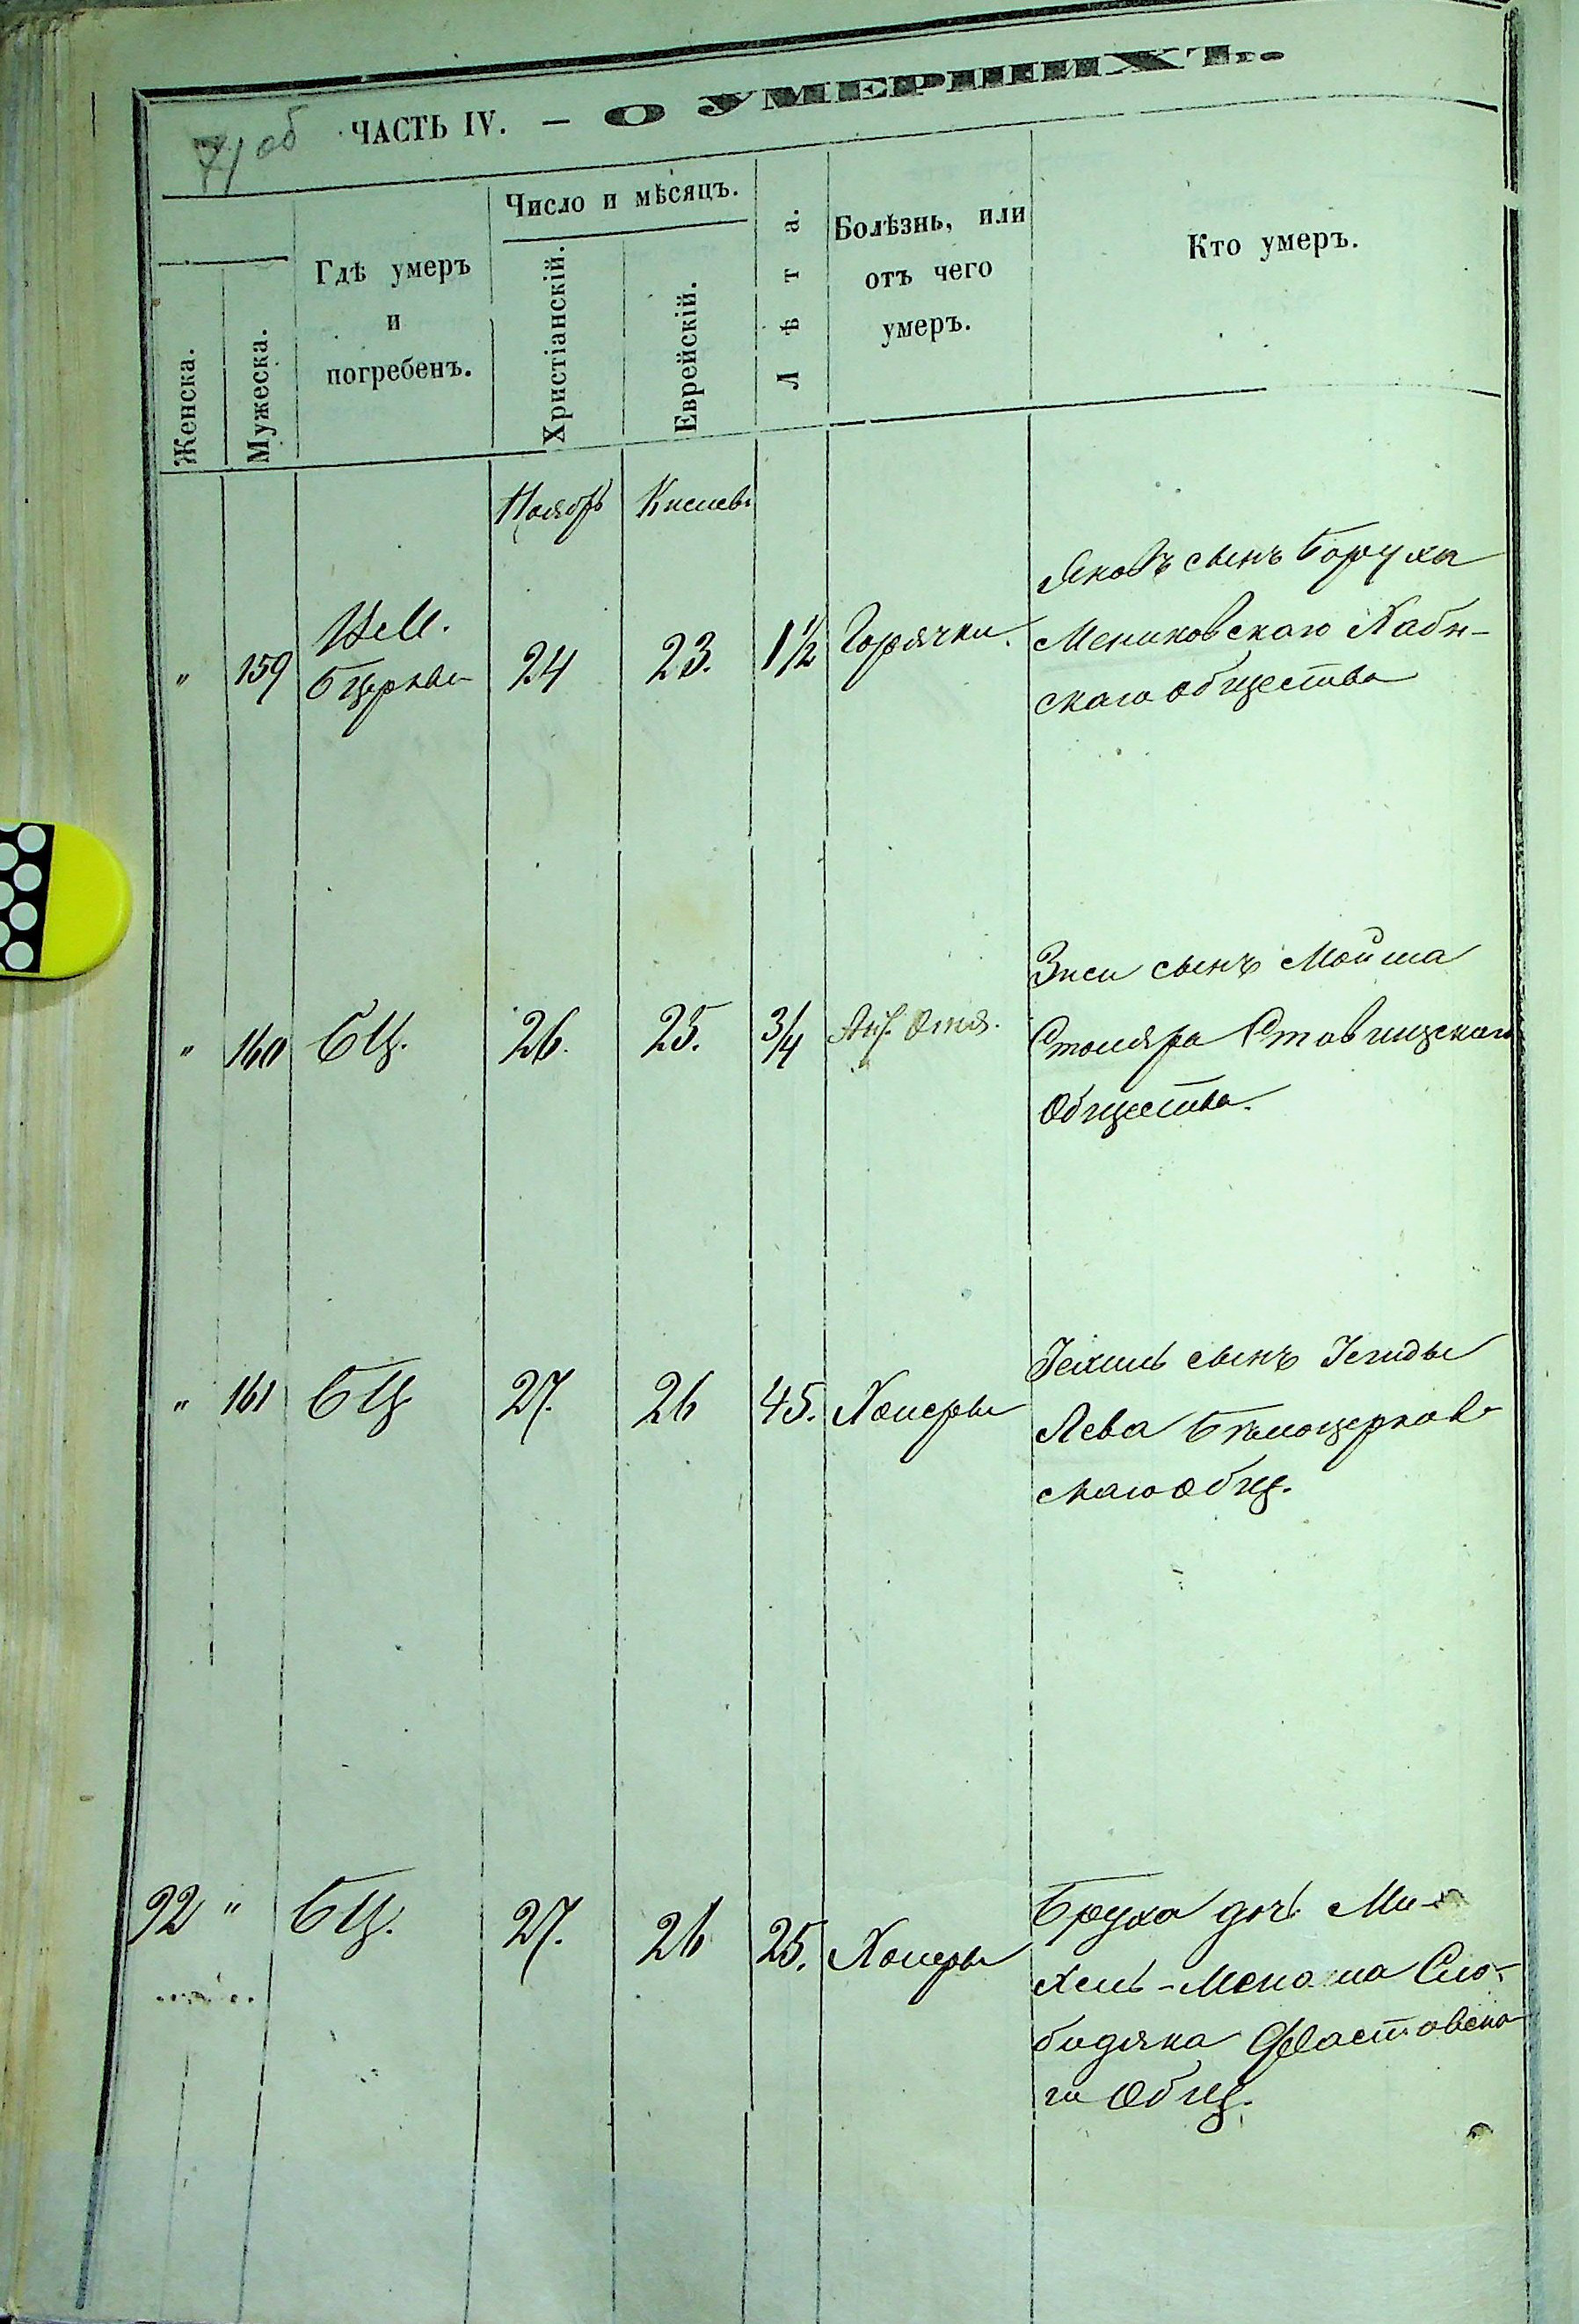 71 об
ЧАСТЬ IV. — О УМЕРШИХЪ.
Женска.
Мужеска.
Гдѣ умеръ
и
погребенъ.
Число и мѣсяцъ.
Христіанскій.
Еврейскій.
Лѣта.
Болѣзнь, или
отъ чего
умеръ.
Кто умеръ.
Ноябрь Кислевъ
" 159 Бцеркви 24 23. 1½ Горячки.
Яковъ сынъ Боруха
скаго общества
" 160 БЦ. 26. 25. 3/4
сынъ Мойша
Столяра Ставищскаго
Общества.
" 161 БЦ 27. 26 45. Холеры
сынъ
Лева Бѣлоцерков-
скаго Общ.
92 " БЦ. 27. 26 25. Холеры
Бруха дочь Ми-
хель-Менаша Сло-
бодяка Фастовска-
го Общ.